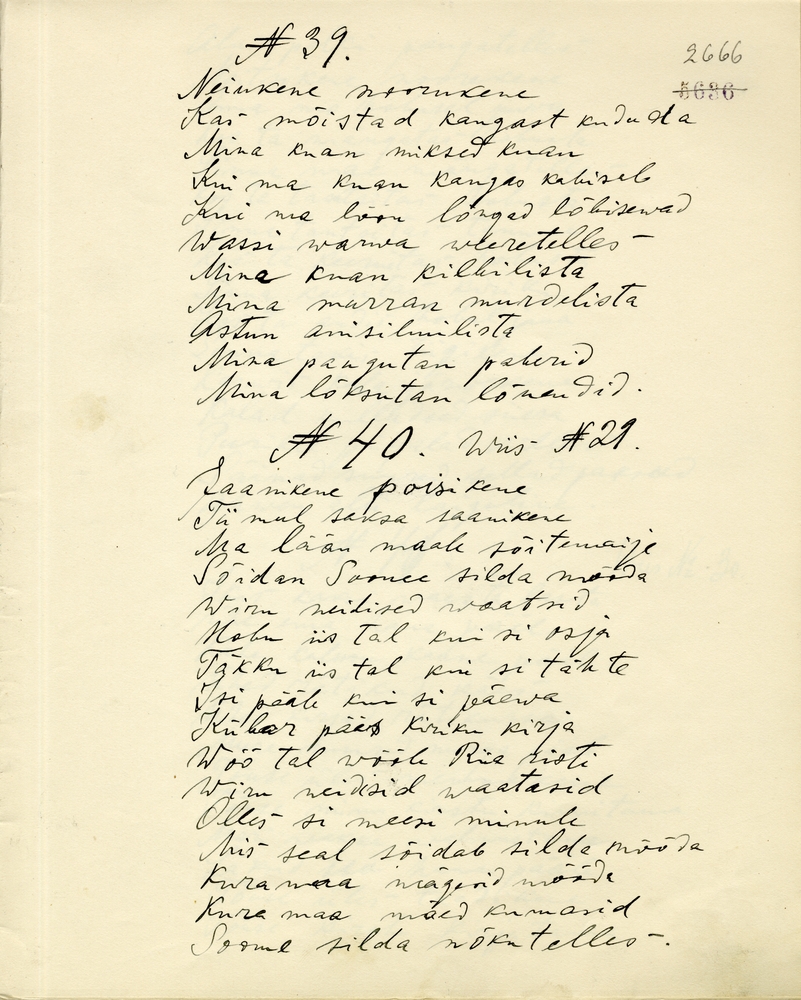 № 39.
2666
5636
Neiukene noorukene
Kas mõistad kangast kududa
Mina kuan miksed kuan
Kui ma kuan kangas kabiseb
Kui ma löön lõngad lõbisewad
Wassi warwa weeretelles
Mina kuan kilbilista
Mina murran murdelista
Astun anisilmilista
Mina paugutan paberid
Mina lõksutan lõuendid.
№ 40. Wiis № 29.
Jaanikene poisikene
Tii mul saksa saanikene
Ma lään maale sõitemaije
Sõidan Soome silda mööda
Wiru neidised waatsid
Hobu iis tal kui si osja
Täkku iis tal kui si tähte
Isi pääle kui si päewa
Kübar pääs Kiriku kirja
Wöö tal wööle Riia risti
Wiru neidisid waatasid
Olles si meesi minule
Mis seal sõidab silda mööda
Kuramaa mägesid mööda
Kura maa mäed kumasid
Soome silda nõkutelles.